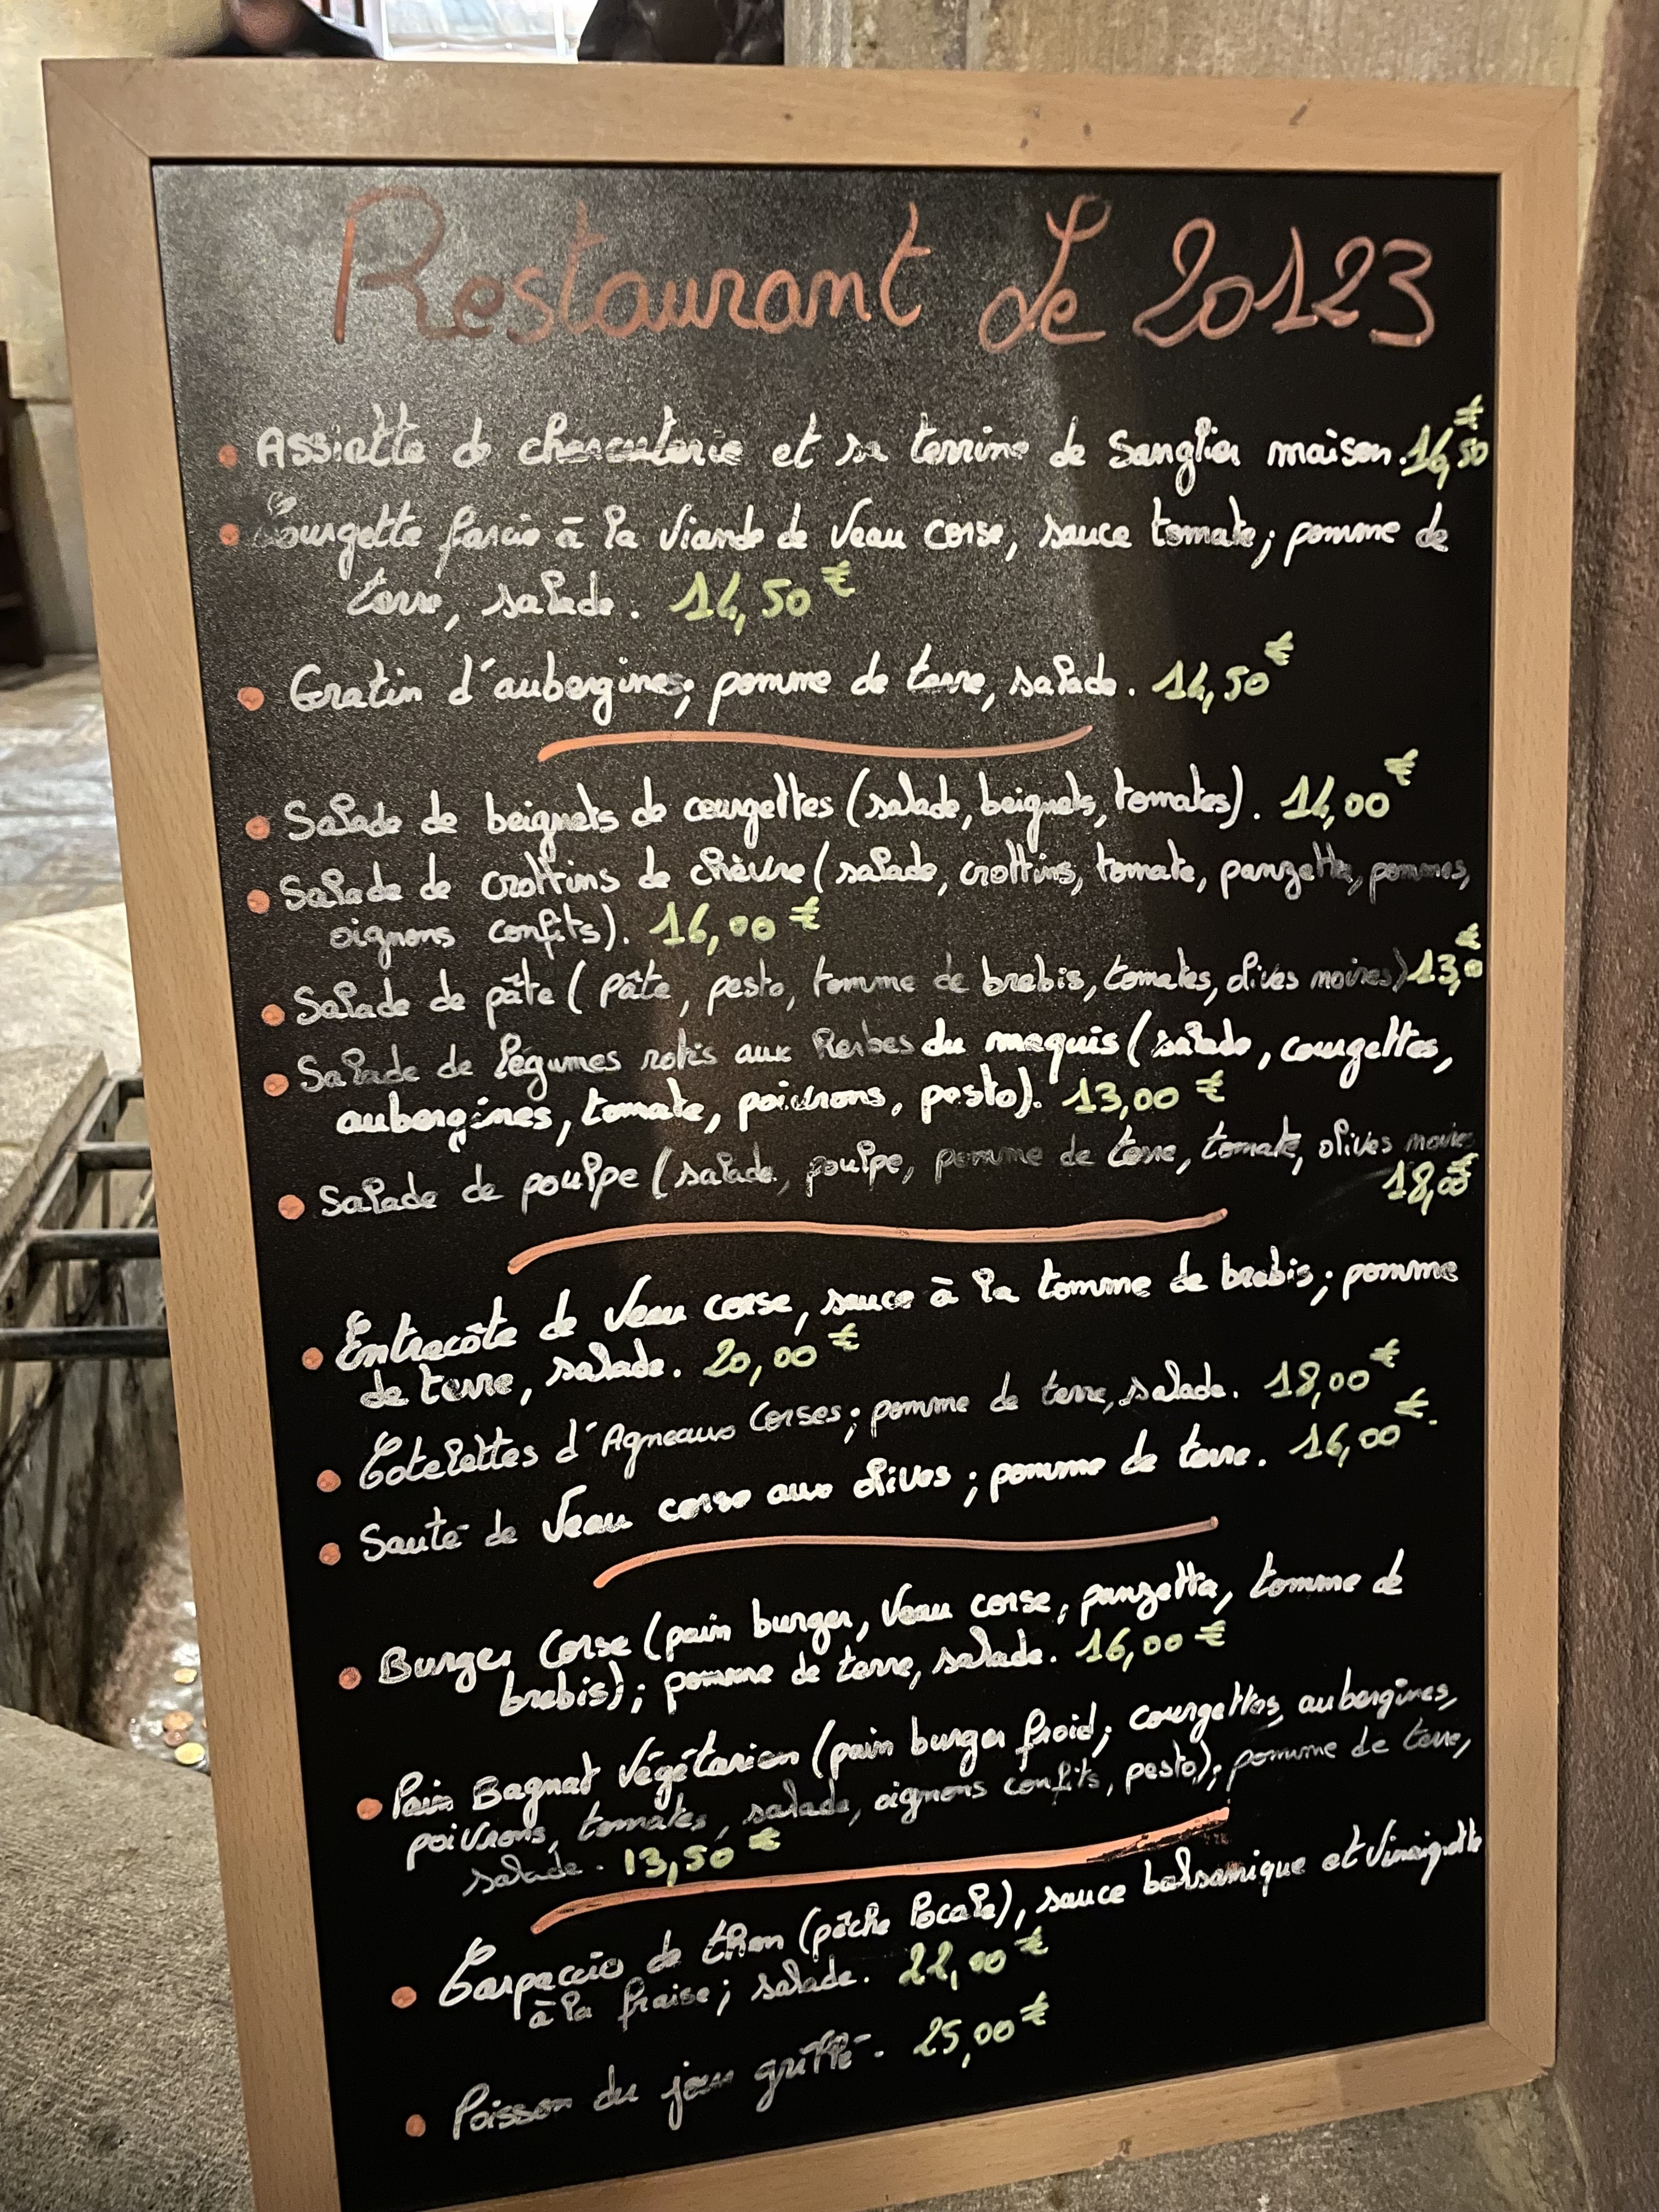 Restaurant Le 20123
• Assiette de charcuterie et sa terrine de Sanglier maison. 16,50 €
• Courgette farcie à la viande de veau corse, sauce tomate; pomme de
terre, salade. 14,50 €
• Gratin d'aubergines; pomme de terre, salade. 14,50 €
• Salade de beignets de courgettes (salade, beignets, tomates). 14,00 €
• Salade de crottins de chèvre (salade, crottins, tomate, panzetta, pommes,
oignons confits). 16,00 €
• Salade de pâte (pâte, pesto, tomme de brebis, tomates, olives noires) 13,0 €
• Salade de légumes rotis aux herbes du maquis (salade, courgettes,
aubergines, tomate, poivrons, pesto). 13,00 €
• Salade de poulpe (salade, poulpe, pomme de terre, tomate, olives noires
18,00 €
• Entrecôte de veau corse, sauce à la tomme de brebis; pomme
de terre, salade. 20,00 €
• Cotelettes d'Agneaux Corses; pomme de terre, salade. 18,00 €
• Sauté de Veau corse aux olives; pomme de terre. 16,00 €.
• Burger Corse (pain burger, veau corse, panzetta, tomme de
brebis); pomme de terre, salade. 16,00 €
• Pain Bagnat végétarien (pain burger froid; courgettes, aubergines,
poivrons, tomates, salade, oignons confits, pesto); pomme de terre,
salade. 13,50 €
• Carpaccio de thon (pêche locale), sauce balsamique et vinaigrette
à la fraise; salade. 22,00 €
• Poisson du jour grillé. 25,00 €